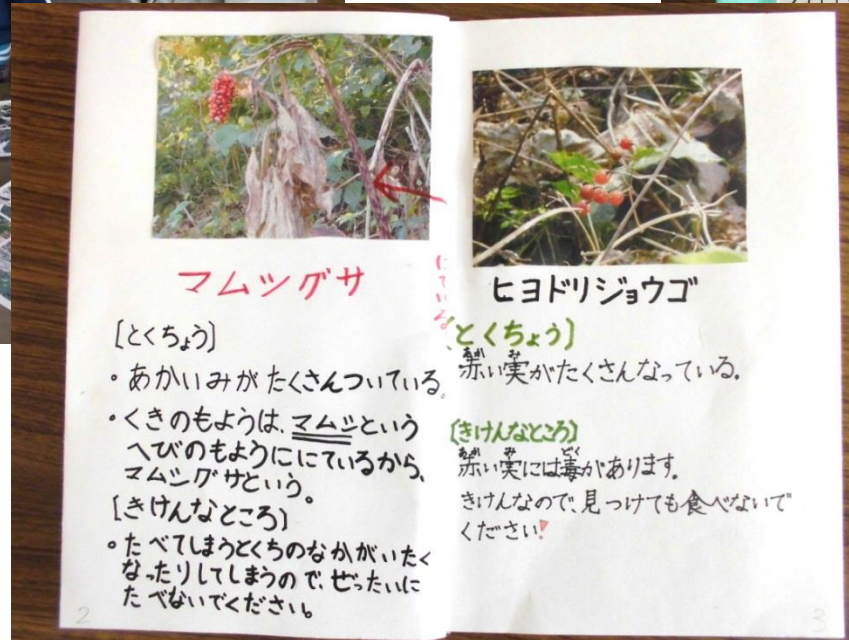 マムシグサ
[とくちょう]
・あかいみがたくさんついている。
・くきのもようは、マムシという
へびのもようににているから、
マムシグサという。
[きけんなところ]
・たべてしまうとくちのなかがいたく
なったりしてしまうので、ぜったいに
たべないでください。
2
にている。
ヒヨドリジョウゴ
[とくちょう]
赤い実がたくさんなっている。
[きけんなところ]
赤い実には毒があります。
きけんなので、見つけても食べないで
ください!
3